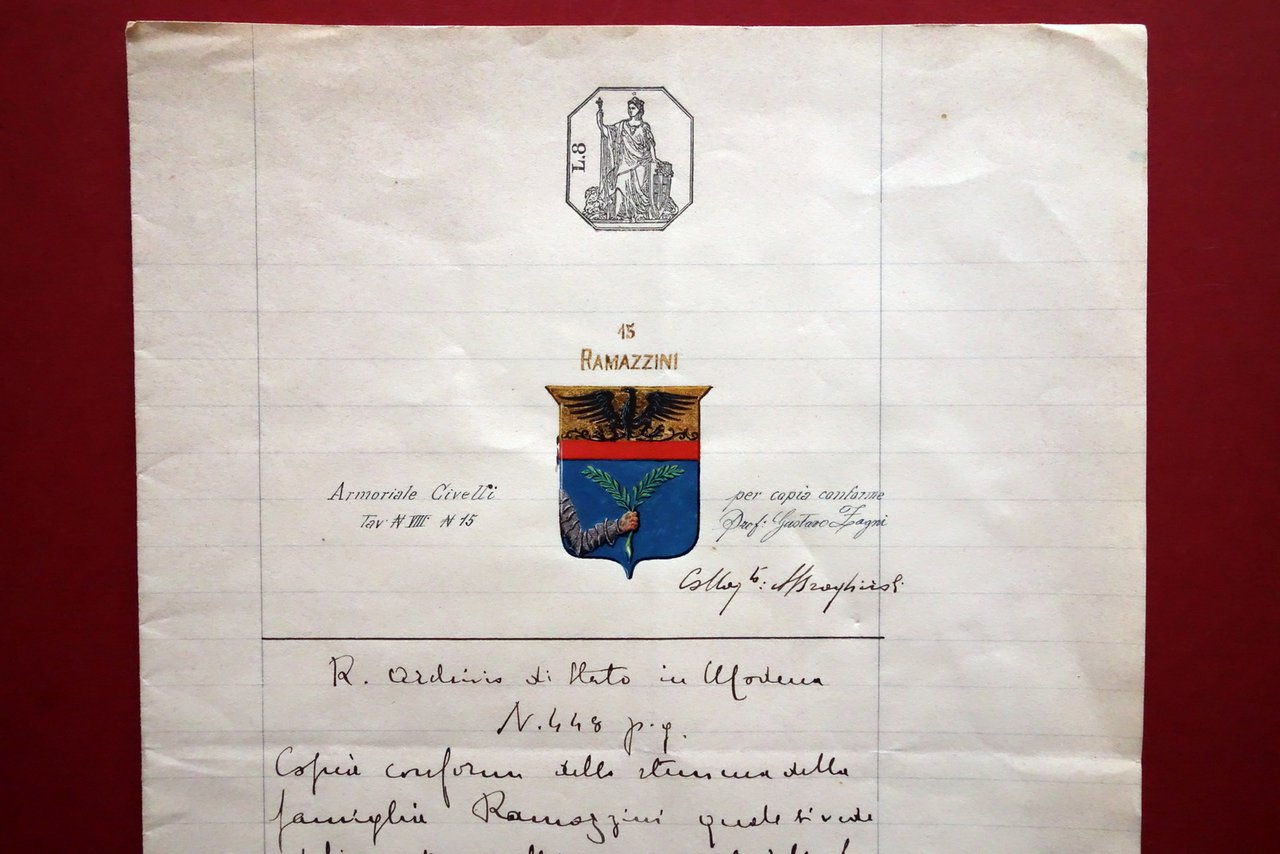 L.8
15
RAMAZZINI
Armoriale Civelli
Tav. N VIII N 15
per copia conforme
Prof. Gustavo Zagni
R. Archivio di Stato in Modena
N. 448 p. g.
Copia conforme dello stemma della
famiglia Ramazzini quale si vede